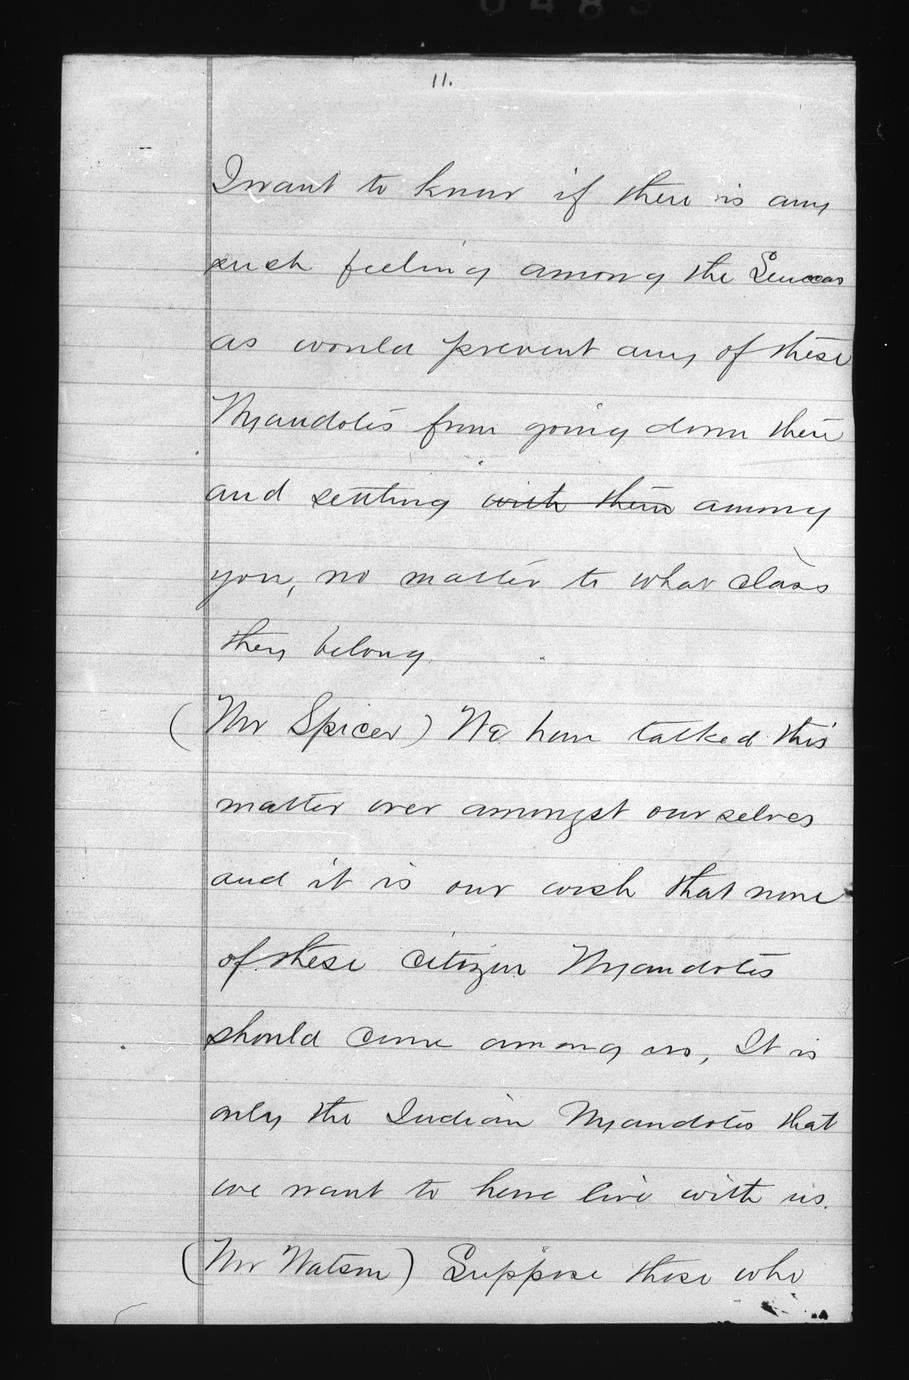 11.
I want to know if there is any
such feeling among the Senecas
as would prevent any of these
Wyandotes from going down there
and settling with them among
you, no matter to what class
they belong.
(Mr Spicer) We have talked this
matter over amongst ourselves
and it is our wish that none
of these citizen Wyandotes
should come among us, It is
only the Indian Wyandotes that
we want to have live with us.
(Mr Watson) Suppose those who